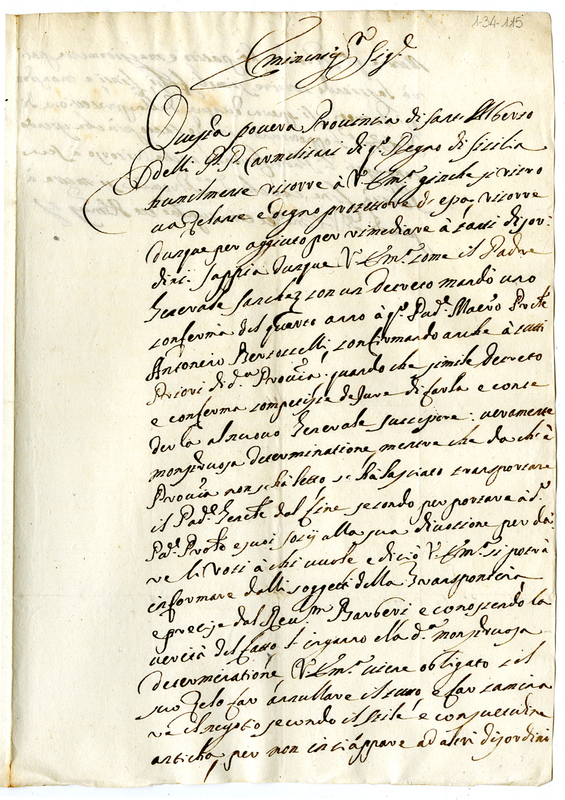 1-34-115
Eminen.mo Sig.r
Questa povera Provincia di Sant Alberto
delli P.P. Carmelitani di q.o Regno di Sicilia
humilmente ricorre à V. Em.a giache si ritro
va zelante e degno protettore di essa, ricorre
dunque per aggiuto per rimediare à tanti disor
dini. Sappia dunque V. Em.a come il Padre
Generale Sanchez con un decreto mandò una
conferma del quarto anno à q.o Pad.e Maestro Pro.le
Antonino confirmando anche à tutti
Priori di d.a Prov.cia, quando che simile decreto
e conferma competisce de Jure di farla e conce
derla al nuovo Generale successore: veramente
monstruosa determinatione, mentre che da ch'è
Prov.cia non s'hà letto, se hà lasciato transportare
il Pad.e Gen.le dal fine secondo per portare à d.o
Pad.e Pro.le e suoi socij alla sua divotione per da
re li Voti à chi vuole e di ciò V. Em.a si potrà
informare dalli soggetti della Transpontina
e precise dal Rev.mo Barberi e conoscendo la
verità del fatto l'inganno ella d.a monstruosa
determinatione V. Em.a viene obligato con il
suo zelo far annullare il tutto e far camina
re il negotio secondo il stile e consuetudine
anticha, per non inciappare ad altri disordini